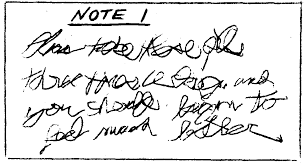 NOTE 1
Please take these pills
three times a day and
you should begin to
feel much better